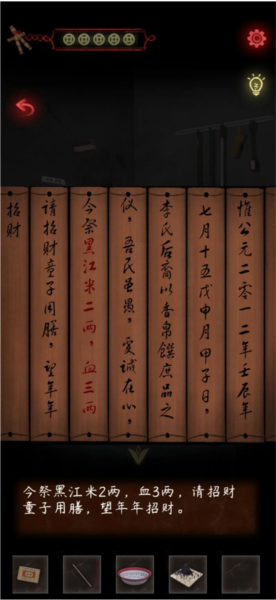 惟公元二零一二年壬辰年
七月十五戊申月甲子日，
李氏后裔以香帛馔庶品之
仪，吾民虽愚，爱诚在心，
今祭黑江米二两，血三两
请招财童子用膳，望年年
招财
今祭黑江米2两，血3两，请招财
童子用膳，望年年招财。